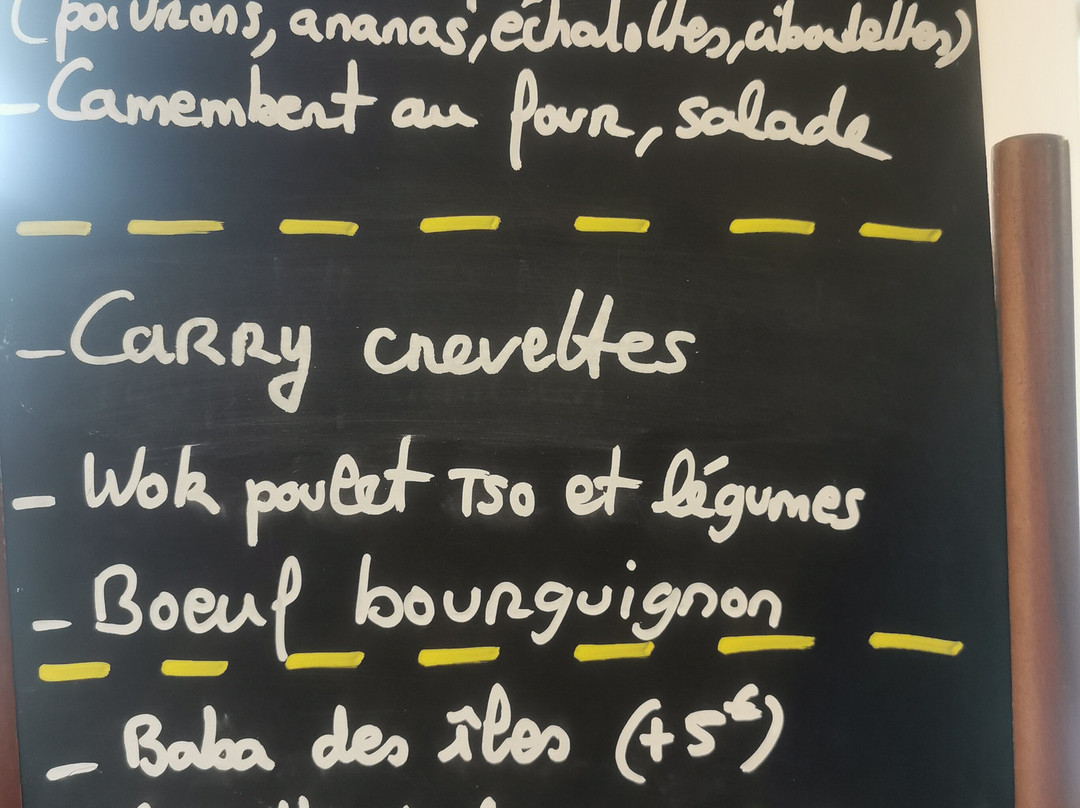 (poivrons, ananas, échalottes, ciboulettes)
- Camembert au four, salade
- Carry crevettes
- Wok poulet TSO et légumes
- Boeuf bourguignon
- Baba des îles (+5€)